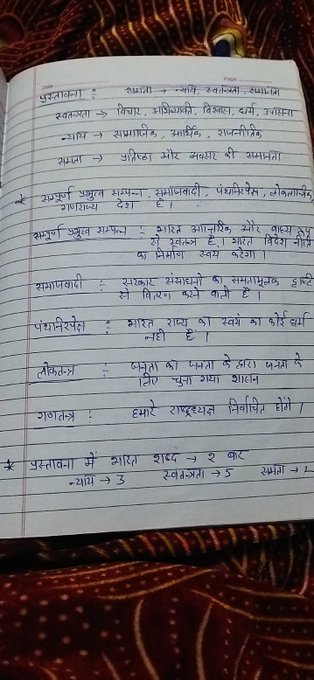 Date
Page
प्रस्तावना : समता → न्याय, स्वतन्त्रता, समानता
स्वतन्त्रता → विचार, अभिव्यक्ति, विश्वास, धर्म, उपासना
न्याय → सामाजिक, आर्थिक, राजनीतिक
समता → प्रतिष्ठा और अवसर की समानता
* सम्पूर्ण प्रभुत्व सम्पन्न, समाजवादी, पंथनिरपेक्ष, लोकतान्त्रिक,
गणराज्य देश है।
सम्पूर्ण प्रभुत्व सम्पन्न :- भारत आन्तरिक और वाह्य रूप
से स्वतन्त्र है, भारत विदेश नीति
का निर्माण स्वयं करेगा।
समाजवादी :- सरकार संसाधनों का समतामूलक दृष्टि
से वितरण करने वाली है।
पंथनिरपेक्ष :- भारत राज्य का स्वयं का कोई धर्म
नही है।
लोकतन्त्र :- जनता का जनता के द्वारा जनता के
लिए चुना गया शासन
गणतन्त्र : हमारे राष्ट्राध्यक्ष निर्वाचित होंगे।
* प्रस्तावना में भारत शब्द → 2 बार
न्याय → 3 स्वतन्त्रता → 5 समता → 2